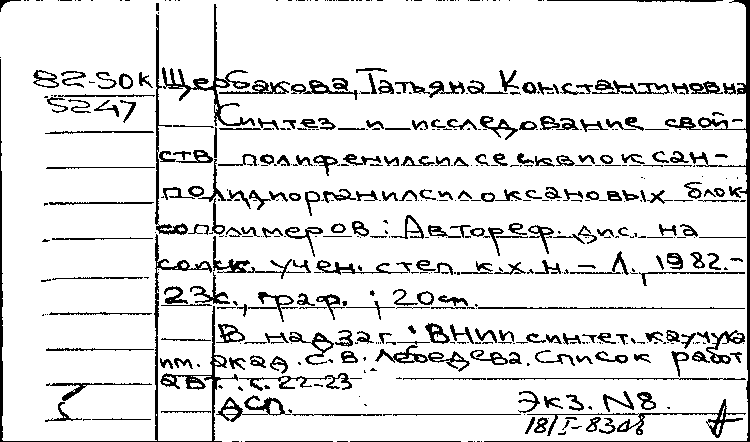 82-50к Щербакова, Татьяна Константиновна
5247
Синтез и исследование свой-
ств полифенилсилсесквиоксан-
полидиорганилсилоксановых блок-
сополимеров : Автореф. дис. на
соиск. учен. степ к.х.н. - Л., 1982.-
23с., граф. ; 20см.
В надзаг. : ВНИИ синтет. каучука
им. акад. С.В. Лебедева. Список работ
авт. : с. 22-23
ДСП.
Экз. N8.
18/I-83